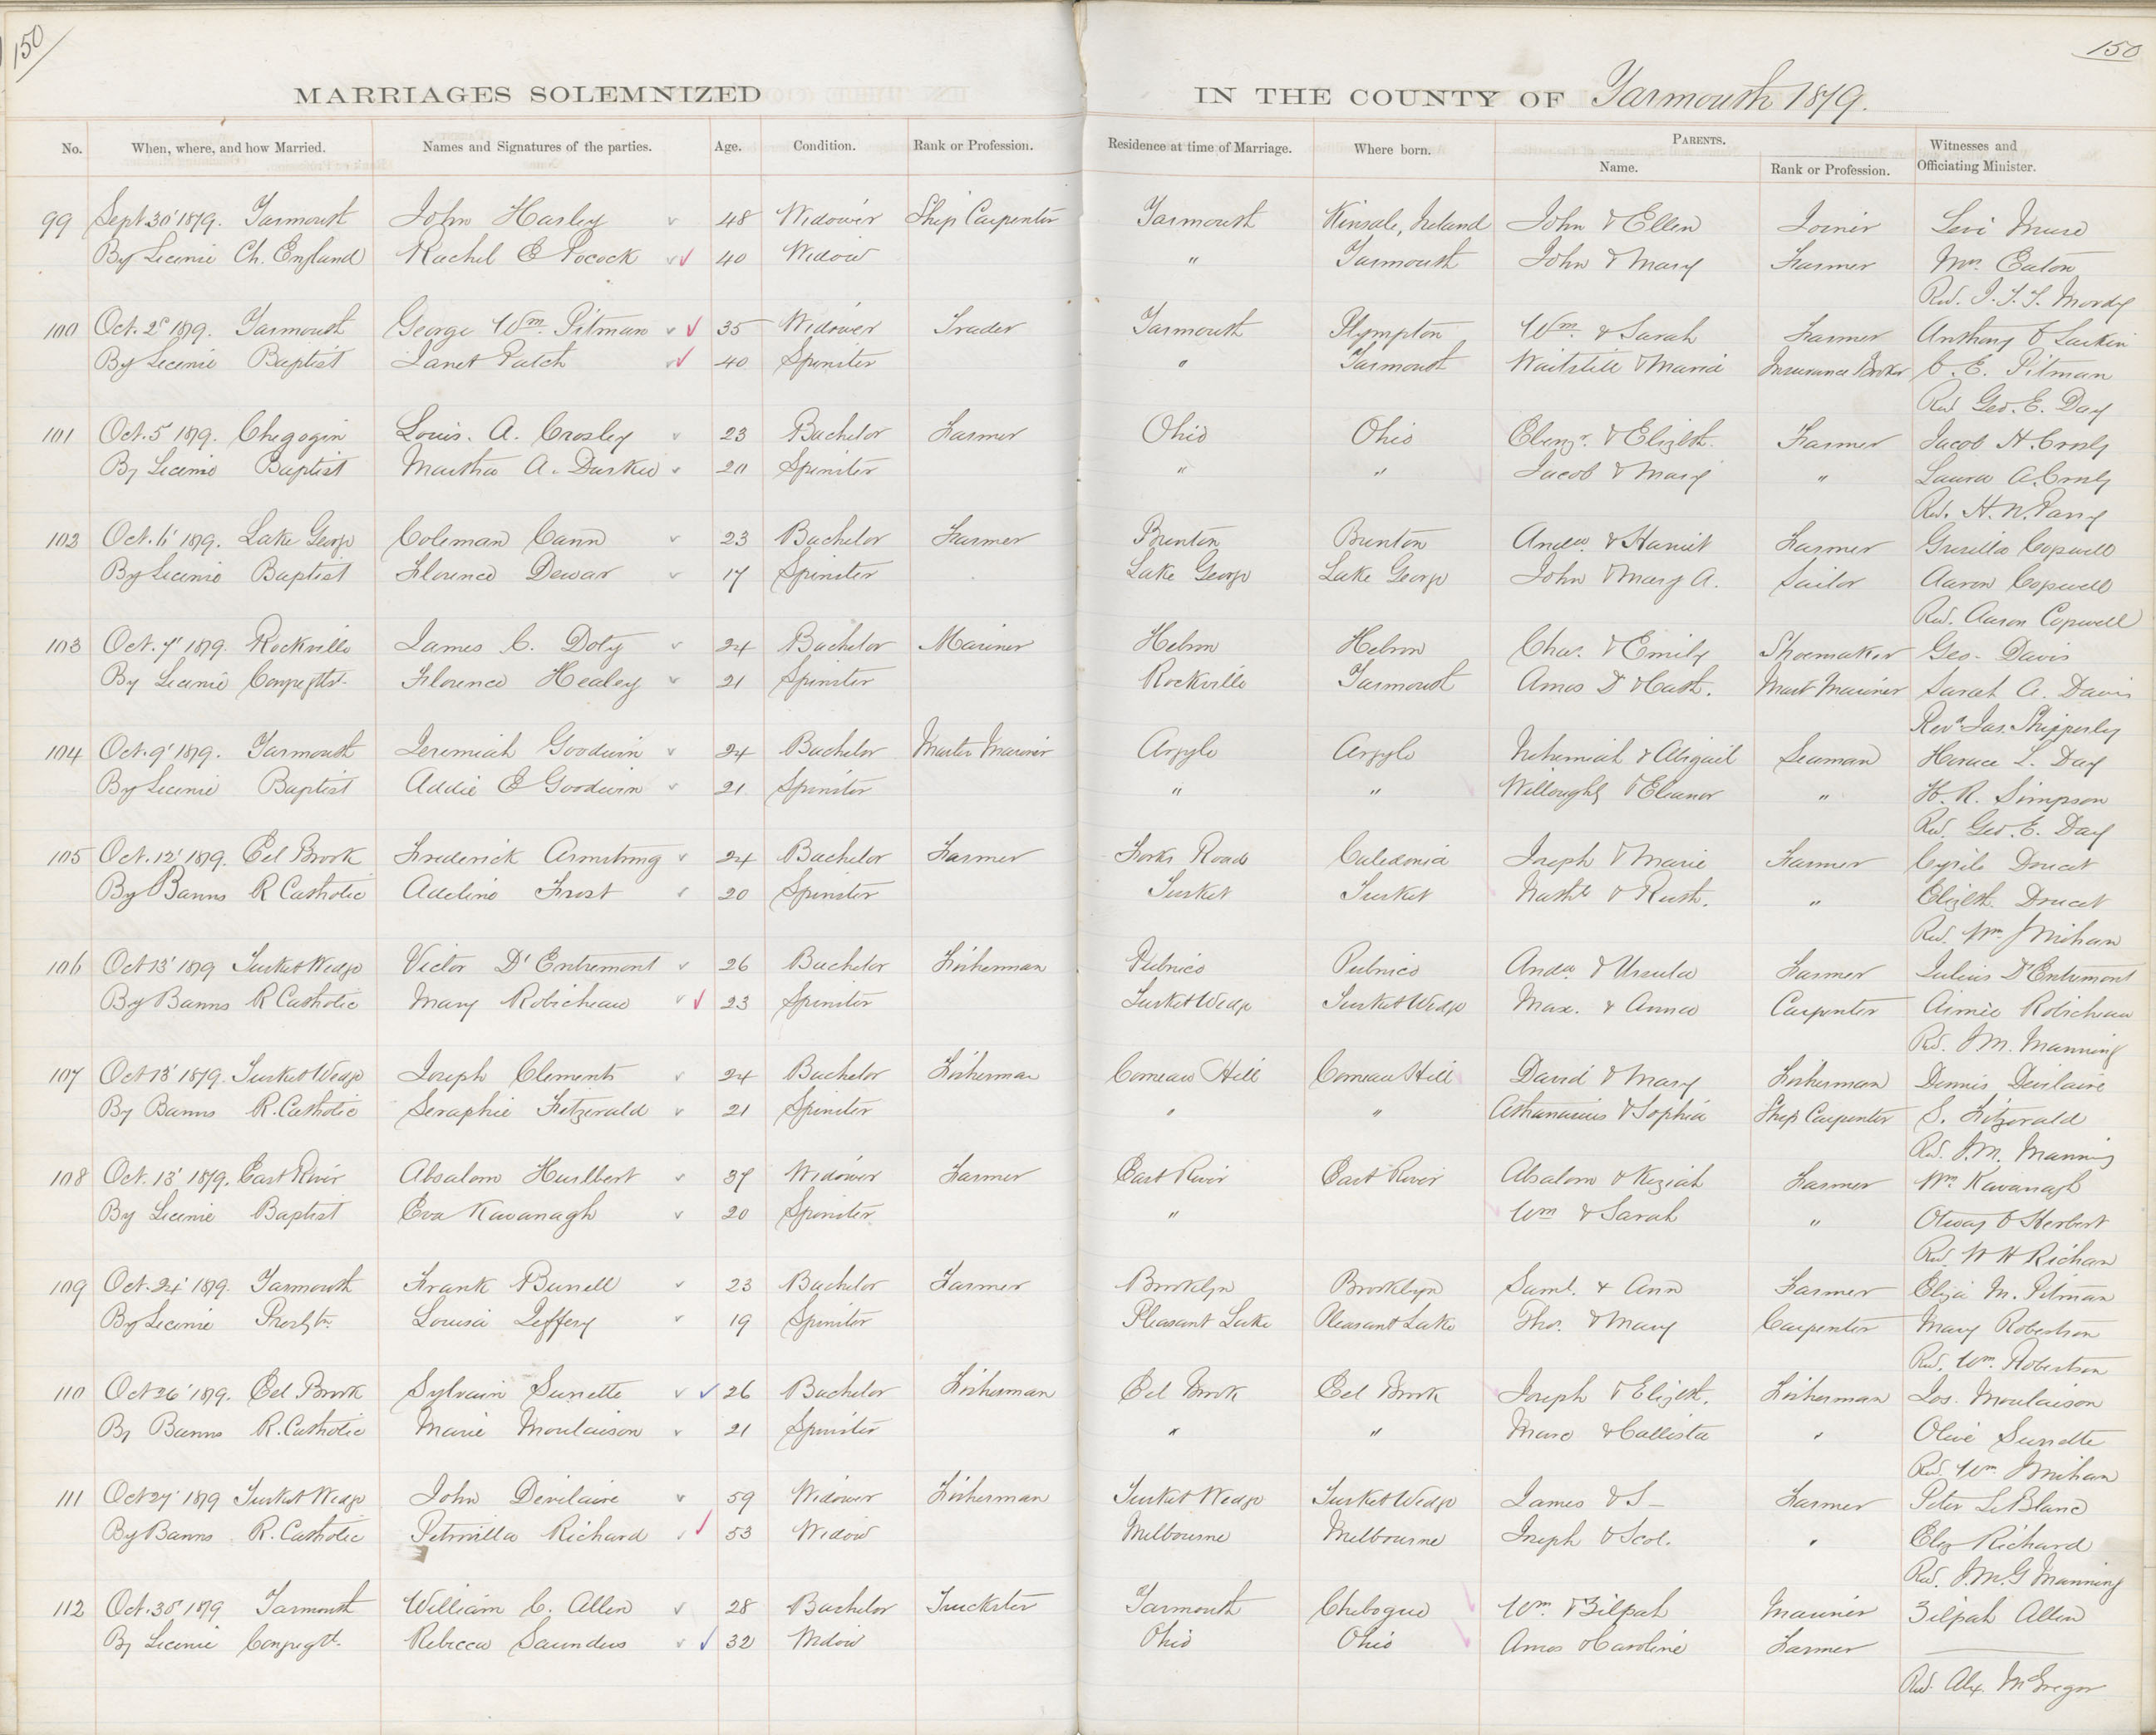 150
150
MARRIAGES SOLEMNIZED IN THE COUNTY OF Yarmouth 1879.
No. When, where, and how Married. Names and Signatures of the parties. Age. Condition. Rank or Profession. Residence at time of Marriage. Where born. PARENTS. Name. Rank or Profession. Witnesses and Officiating Minister.
99 Sept 30' 1879. Yarmouth John Harley 48 Widower Ship Carpenter Yarmouth Kinsale, Ireland John & Ellen Joiner Levi Muse
By License Ch. England Rachel E Pocock 40 Widow " Yarmouth John & Mary Farmer Mrs. Eaton
Rev. J. T. T. Moody
100 Oct. 2d 1879. Yarmouth George Wm. Pitman 35 Widower Trader Yarmouth Plympton Wm. & Sarah Farmer Anthony C Larkin
By License Baptist Janet Patch 40 Spinster " Yarmouth Waitstill & Maria Insurance Broker C. E. Pitman
Rev Geo. E. Day
101 Oct. 5' 1879. Chegogin Louis. A. Crosley 23 Bachelor Farmer Ohio Ohio Ebenzr. & Elizbth. Farmer Jacob H. Crosly
By License Baptist Martha A. Durkee 20 Spinster " " Jacob & Mary " Laura A. Crosly
Rev. H. N. Parry
102 Oct. 6' 1879. Lake George Coleman Cann 23 Bachelor Farmer Brenton Brenton Andw. & Harriet Farmer Grisilla Copwell
By License Baptist Florence Dewar 17 Spinster Lake George Lake George John & Mary A. Sailor Aaron Copwell
Rev. Aaron Copwell
103 Oct. 7' 1879. Rockville James C. Doty 24 Bachelor Mariner Hebron Hebron Chas. & Emily Shoemaker Geo. Davis
By License Congregtst. Florence Healey 21 Spinster Rockville Yarmouth Amos D & Cath. Mast Mariner Sarah A. Davis
Revd. Jas. Shipperley
104 Oct. 9' 1879. Yarmouth Jeremiah Goodwin 24 Bachelor Master Mariner Argyle Argyle Nehemiah & Abigail Seaman Horace L. Day
By License Baptist Addie E Goodwin 21 Spinster " " Willoughby & Eleanor " H. R. Simpson
Rev. Geo. E. Day
105 Oct. 12' 1879. Eel Brook Frederick Armstrong 24 Bachelor Farmer Forks Road Caledonia Joseph & Marie Farmer Cyrile Doucet
By Banns R Catholic Adeline Frost 20 Spinster Tusket Tusket Nathl & Ruth. " Elizbth. Doucet
Rev. Wm J Mihan
106 Oct 13' 1879 Tusket Wedge Victor D'Entremont 26 Bachelor Fisherman Pubnico Pubnico Andw & Ursula Farmer Julius D'Entremont
By Banns R Catholic Mary Robicheau 23 Spinster Tusket Wedge Tusket Wedge Max. & Anna Carpenter Aimée Robicheau
Rev. J. M. Manning
107 Oct 13' 1879. Tusket Wedge Joseph Clements 24 Bachelor Fisherman Comeau Hill Comeau Hill David & Mary Fisherman Dennis Devilaire
By Banns R. Catholic Seraphie Fitzerald 21 Spinster " " Athanasius & Sophia Ship Carpenter S. Fitzgerald
Rev. J. M. Manning
108 Oct. 13' 1879. East River Absalom Hurlbert 37 Widower Farmer East River East River Absalom & Keziah Farmer Wm Kavanagh
By License Baptist Eva Kavanagh 20 Spinster " Wm & Sarah " Otway C Herbert
Rev. W H Richan
109 Oct. 24' 1879. Yarmouth Frank Burrell 23 Bachelor Farmer Brooklyn Brooklyn Saml. & Ann Farmer Eliza M. Pitman
By License Presbytn. Louisa Jeffery 19 Spinster Pleasant Lake Pleasant Lake Thos. & Mary Carpenter Mary Robertson
Rev. Wm. Robertson
110 Oct 26' 1879. Eel Brook Sylvain Surrette 26 Bachelor Fisherman Eel Brook Eel Brook Joseph & Elizbth. Fisherman Jos. Moulaison
By Banns R. Catholic Marie Moulaison 21 Spinster " " Marc & Callista " Olive Surrette
Rev. Wm. J Mihan
111 Oct 27' 1879 Tusket Wedge John Devilaire 59 Widower Fisherman Tusket Wedge Tusket Wedge James & S— Farmer Peter LeBlanc
By Banns R. Catholic Petronilla Richard 53 Widow Melbourne Melbourne Joseph & Scol. " Elez Richard
Rev. J. M. G Manning
112 Oct. 30' 1879 Yarmouth William C. Allen 28 Bachelor Truckster Yarmouth Chebogue Wm. & Zilpah Mariner Zilpah Allen
By License Congregtl. Rebecca Saunders 32 Widow Ohio Ohio Amos & Caroline Farmer
Rev. Alex. McGregor